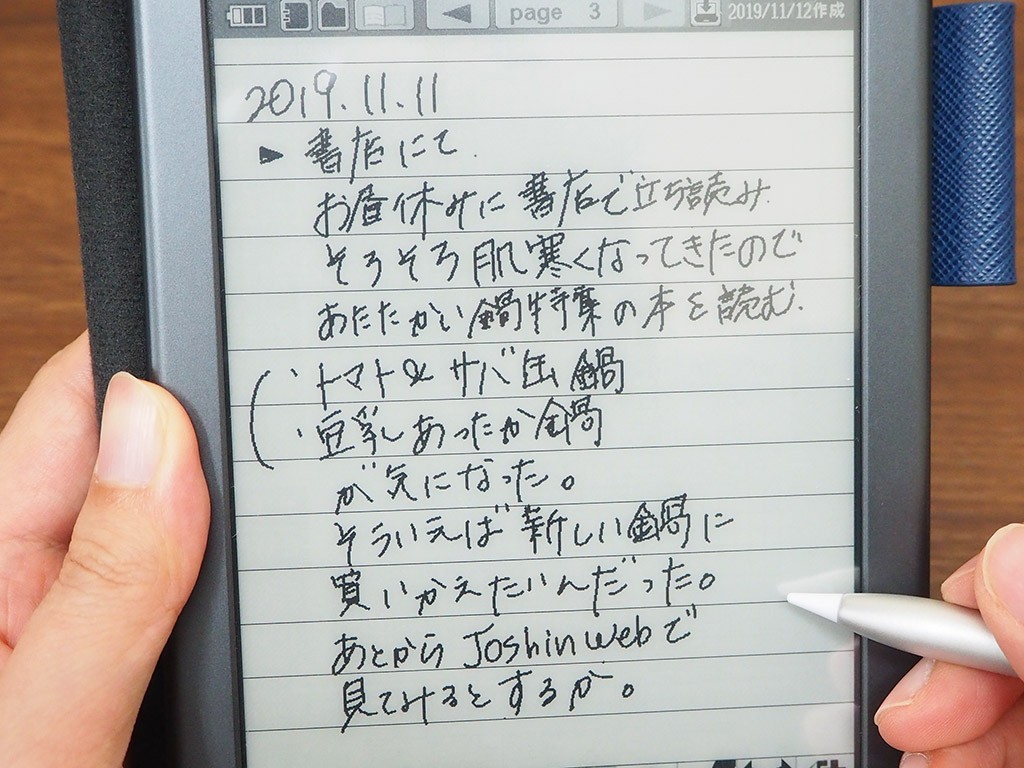 page 3
2019/11/12作成
2019.11.11
▶ 書店にて.
お昼休みに書店で立ち読み.
そろそろ肌寒くなってきたので
あたたかい鍋特集の本を読む.
・トマト&サバ缶鍋
・豆乳あったか鍋
が気になった。
そういえば新しい鍋に
買いかえたいんだった。
あとからJoshinwebで
見てみるとするか。